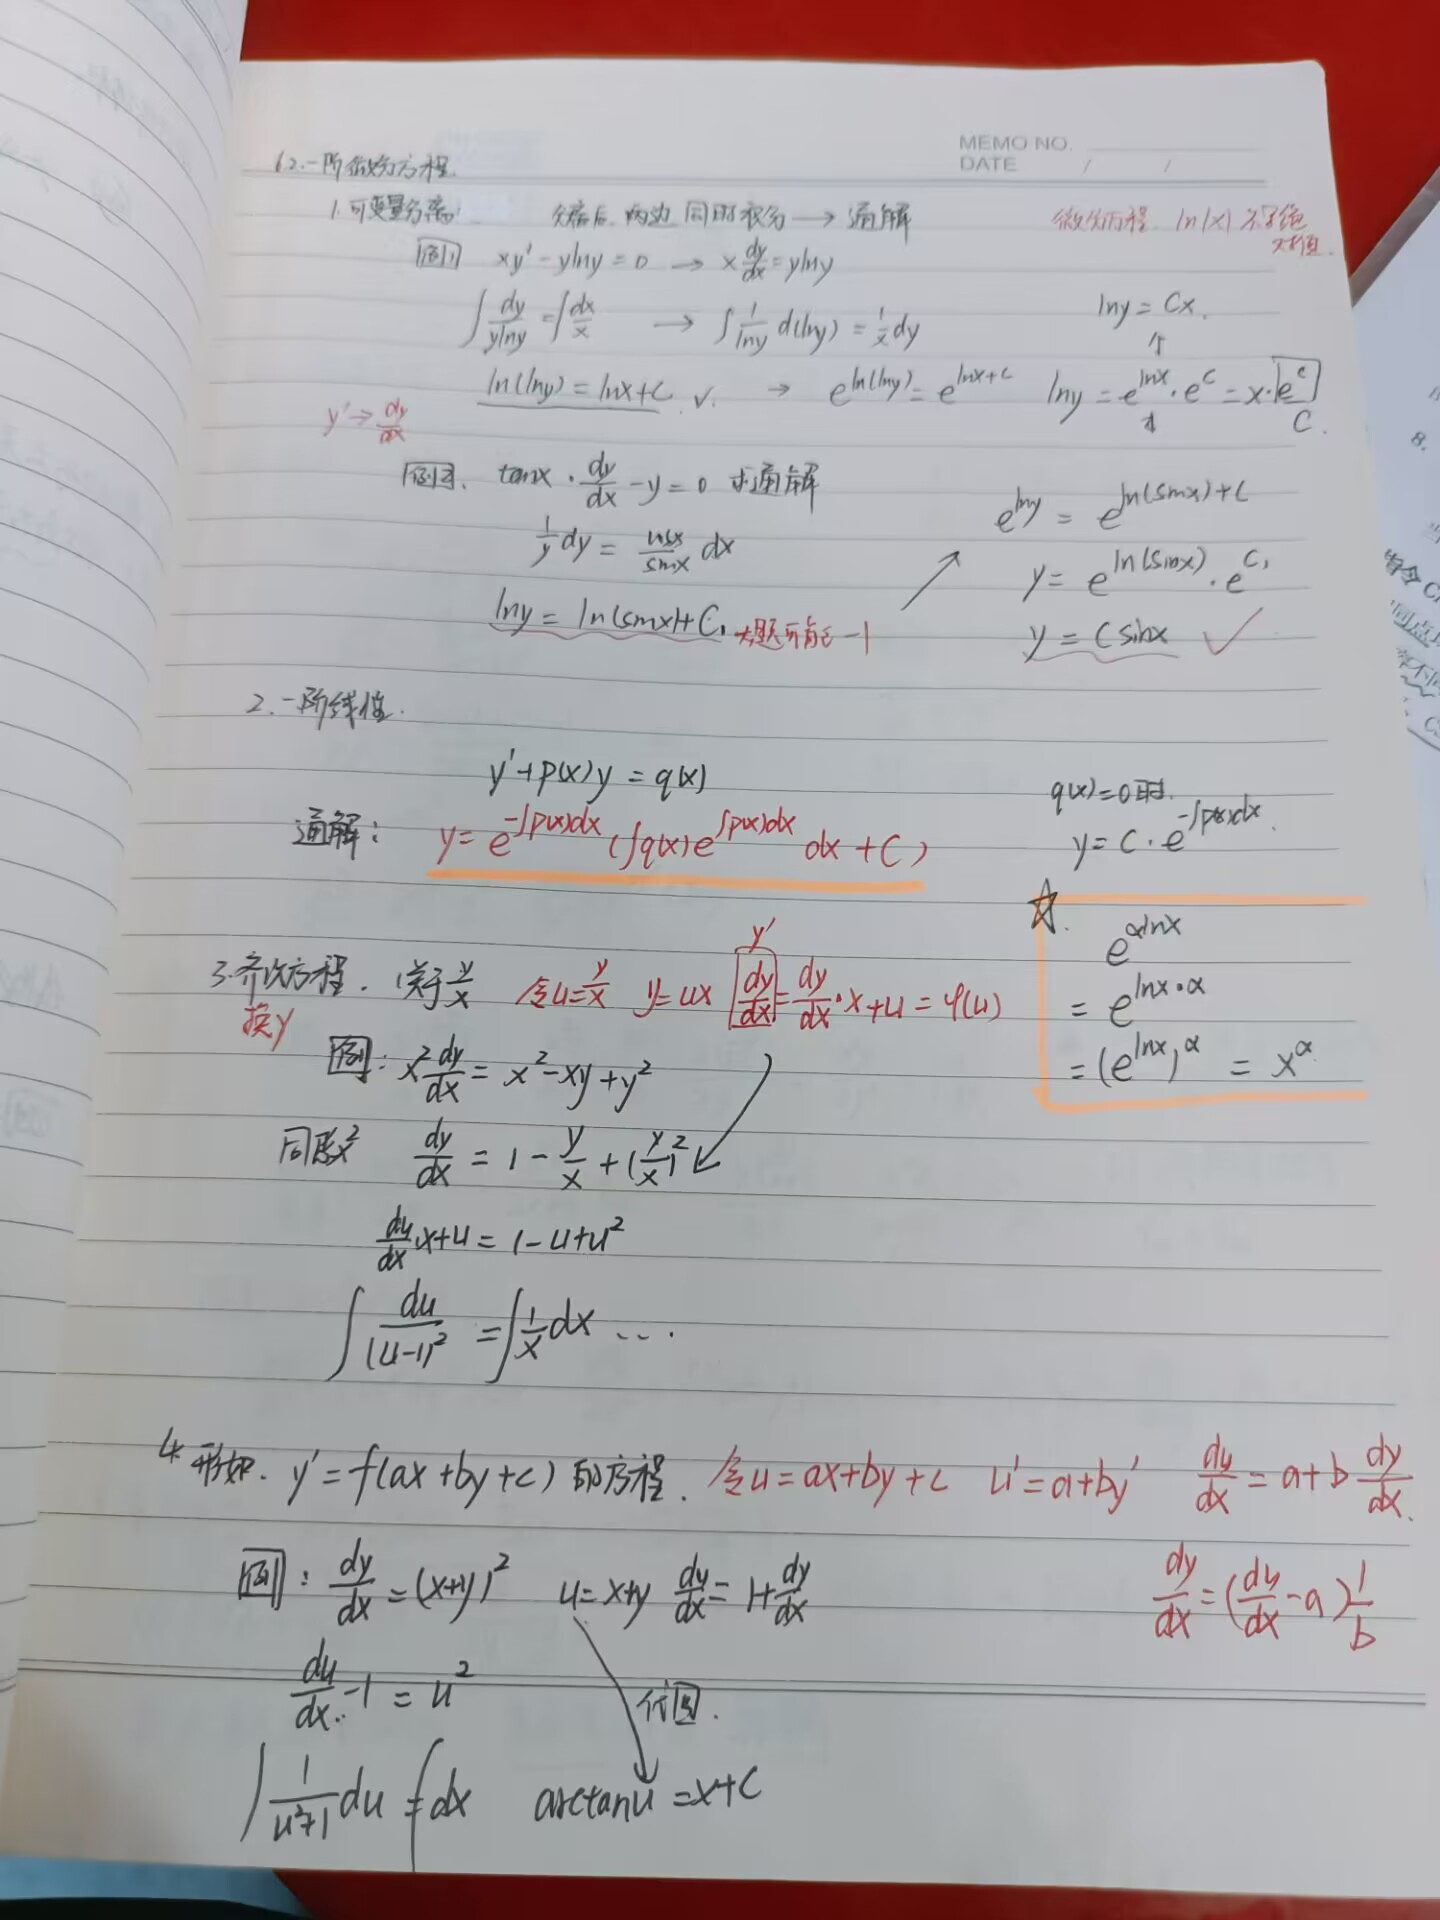 MEMO NO.
DATE / /
6.2.一阶微分方程.
1.可变量分离: 分离后.两边同时积分→通解
微分方程. ln|x| 不写绝
对值.
例1 xy'-ylny=0 → x dy/dx = ylny
∫dy/ylny = ∫dx/x → ∫1/lny d(lny) = 1/x dy
lny = Cx.
ln(lny) = lnx+C. √. → e^ln(lny) = e^lnx+C lny = e^lnx·e^C = x·e^C
C.
y'→dy/dx
例2. tanx·dy/dx-y=0 求通解
1/y dy = cosx/sinx dx
lny = ln(sinx)+C₁ 大题可能-1
e^lny = e^ln(sinx)+C
y = e^ln(sinx)·e^C₁
y = Csinx √
2.一阶线性.
y'+p(x)y = q(x)
通解: y=e^-∫p(x)dx (∫q(x)e^∫p(x)dx dx+C)
q(x)=0时.
y=C·e^-∫p(x)dx.
☆. e^αlnx
= e^lnx·α
= (e^lnx)^α = x^α
3.齐次方程.(关于y/x 令u=y/x y=ux dy/dx = dy/dx·x+u=φ(u)
y'
换y
例: x²dy/dx = x²-xy+y²
同除x² dy/dx = 1-y/x+(y/x)²
du/dx·x+u = 1-u+u²
∫du/(u-1)² = ∫1/x dx ...
4.形如. y'=f(ax+by+c)的方程. 令u=ax+by+c u'=a+by' du/dx = a+b dy/dx.
dy/dx = (du/dx-a)1/b
例: dy/dx = (x+y)² u=x+y du/dx = 1+dy/dx
du/dx.-1 = u²
代回.
∫1/u²+1 du = ∫dx arctanu = x+C
8.